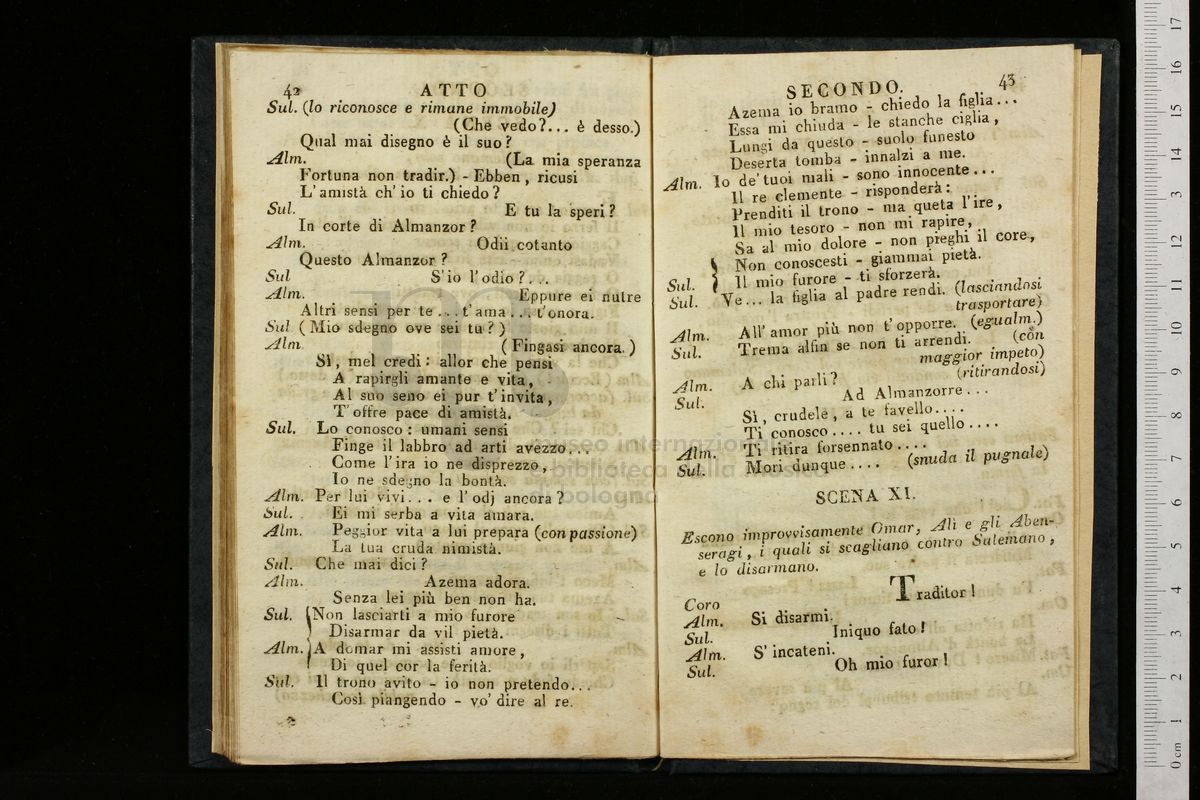 42 ATTO
Sul. (lo riconosce e rimane immobile)
(Che vedo?... è desso.)
Qual mai disegno è il suo?
Alm. (La mia speranza
Fortuna non tradir.) - Ebben, ricusi
L'amistà ch'io ti chiedo?
Sul. E tu la speri?
In corte di Almanzor?
Alm. Odii cotanto
Questo Almanzor?
Sul S'io l'odio?...
Alm. Eppure ei nutre
Altri sensi per te... t'ama... t'onora.
Sul (Mio sdegno ove sei tu?)
Alm (Fingasi ancora.)
Sì, mel credi: allor che pensi
A rapirgli amante e vita,
Al suo seno ei pur t'invita,
T'offre pace di amistà.
Sul. Lo conosco: umani sensi
Finge il labbro ad arti avezzo...
Come l'ira io ne disprezzo,
Io ne sdegno la bontà.
Alm. Per lui vivi... e l'odj ancora?
Sul. Ei mi serba a vita amara.
Alm. Peggior vita a lui prepara (con passione)
La tua cruda nimistà.
Sul. Che mai dici?
Alm. Azema adora.
Senza lei più ben non ha.
Sul. Non lasciarti a mio furore
Disarmar da vil pietà.
Alm. A domar mi assisti amore,
Di quel cor la ferità.
Sul. Il trono avito - io non pretendo...
Così piangendo - vo' dire al re.
SECONDO. 43
Azema io bramo - chiedo la figlia...
Essa mi chiuda - le stanche ciglia,
Lungi da questo - suolo funesto
Deserta tomba - innalzi a me.
Alm. Io de' tuoi mali - sono innocente...
Il re clemente - risponderà:
Prenditi il trono - ma queta l'ire,
Il mio tesoro - non mi rapire,
Sa al mio dolore - non pieghi il core,
Non conoscesti - giammai pietà.
Sul. Il mio furore - ti sforzerà.
Sul. Ve... la figlia al padre rendi. (lasciandosi
trasportare)
Alm. All'amor più non t'opporre. (egualm.)
Sul. Trema alfin se non ti arrendi. (con
maggior impeto)
Alm. A chi parli? (ritirandosi)
Sul. Ad Almanzorre...
Sì, crudele, a te favello....
Ti conosco.... tu sei quello....
Alm. Ti ritira forsennato....
Sul. Mori dunque.... (snuda il pugnale)
SCENA XI.
Escono improvvisamente Omar, Alì e gli Aben-
seragi, i quali si scagliano contro Sulemano,
e lo disarmano.
Coro Traditor!
Alm. Si disarmi.
Sul. Iniquo fato!
Alm. S'incateni.
Sul. Oh mio furor!
museo internazionale
biblioteca della musica
bologna
0 cm 1 2 3 4 5 6 7 8 9 10 11 12 13 14 15 16 17